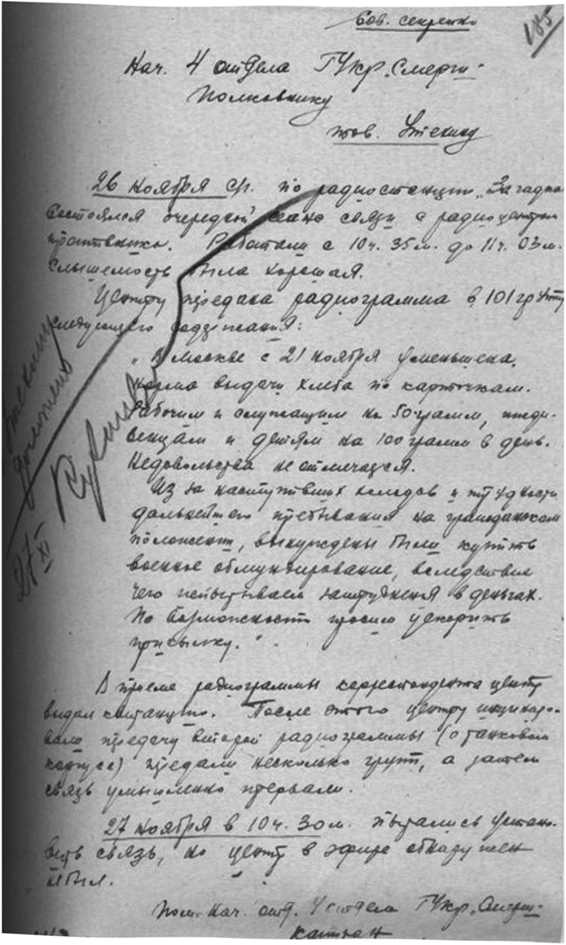 Сов. секретно
185
Нач. 4 отдела ГУкр „Смерш"
Полковнику
тов. Утехину
26 ноября с/г. по радиостанции „Загадка
состоялся очередной сеанс связи с радиоцентром
противника. Работали с 10 ч. 35 м. до 11 ч. 03 м.
Слышимость была хорошая.
Центру передана радиограмма в 101 группу
следующего содержания:
„В Москве с 21 ноября уменьшена
норма выдачи хлеба по карточкам.
Рабочим и служащим на 50 грамм, ижди-
венцам и детям на 100 грамм в день.
Недовольства не отмечается.
Из за наступивших холодов и трудности
дальнейшего пребывания на гражданском
положении, вынуждены были купить
военное обмундирование, вследствие
чего испытываем затруднения в деньгах.
По возможности просим ускорить
присылку."
В приеме радиограммы корреспондента центр
выдал квитанцию. После этого центру
передачу второй радиограммы (о танковом
корпусе) передали несколько групп, а затем
связь умышленно прервали.
27 ноября в 10 ч. 30 м. пытались устано-
вить связь, но центр в эфире обнаружен
не был.
Пом. нач. отд. 4 отдела ГУкр „Смерш"
капитан
27
XI